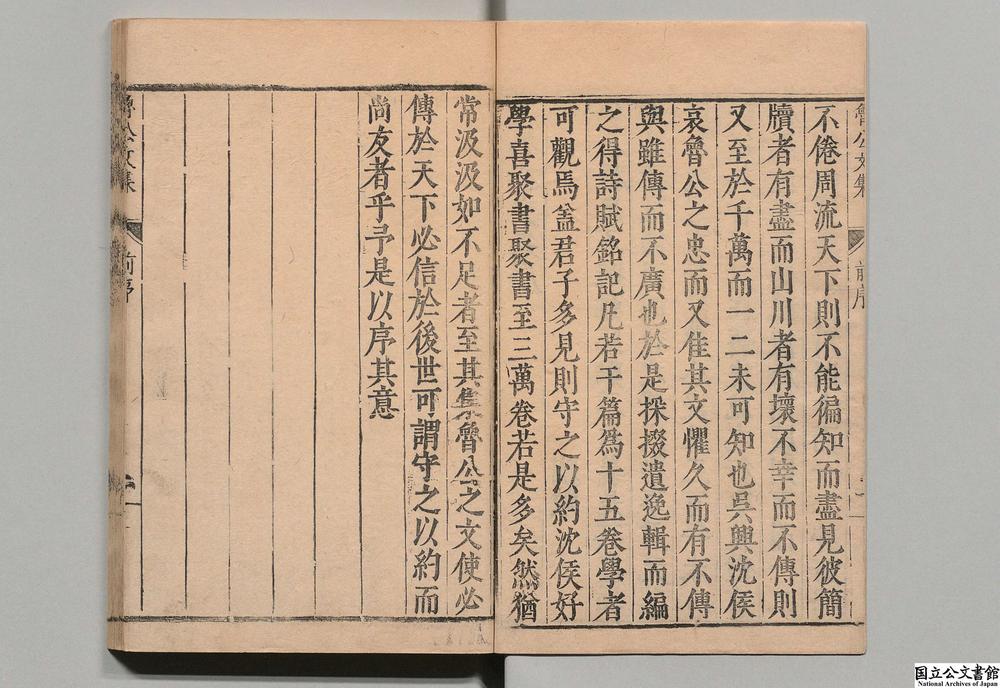 魯公文集
前序
不倦周流天下則不能徧知而盡見彼簡
牘者有盡而山川者有壞不幸而不傳則
又至於千萬而一二未可知也吳興沈侯
哀魯公之忠而又佳其文懼久而有不傳
與雖傳而不廣也於是採掇遺逸輯而編
之得詩賦銘記凡若干篇為十五卷學者
可觀焉盖君子多見則守之以約沈侯好
學喜聚書聚書至三萬卷若是多矣然猶
常汲汲如不足者至其集魯公之文使必
傳於天下必信於後世可謂守之以約而
尚友者乎予是以序其意
魯公文集
前序
二
国立公文書館
National Archives of Japan